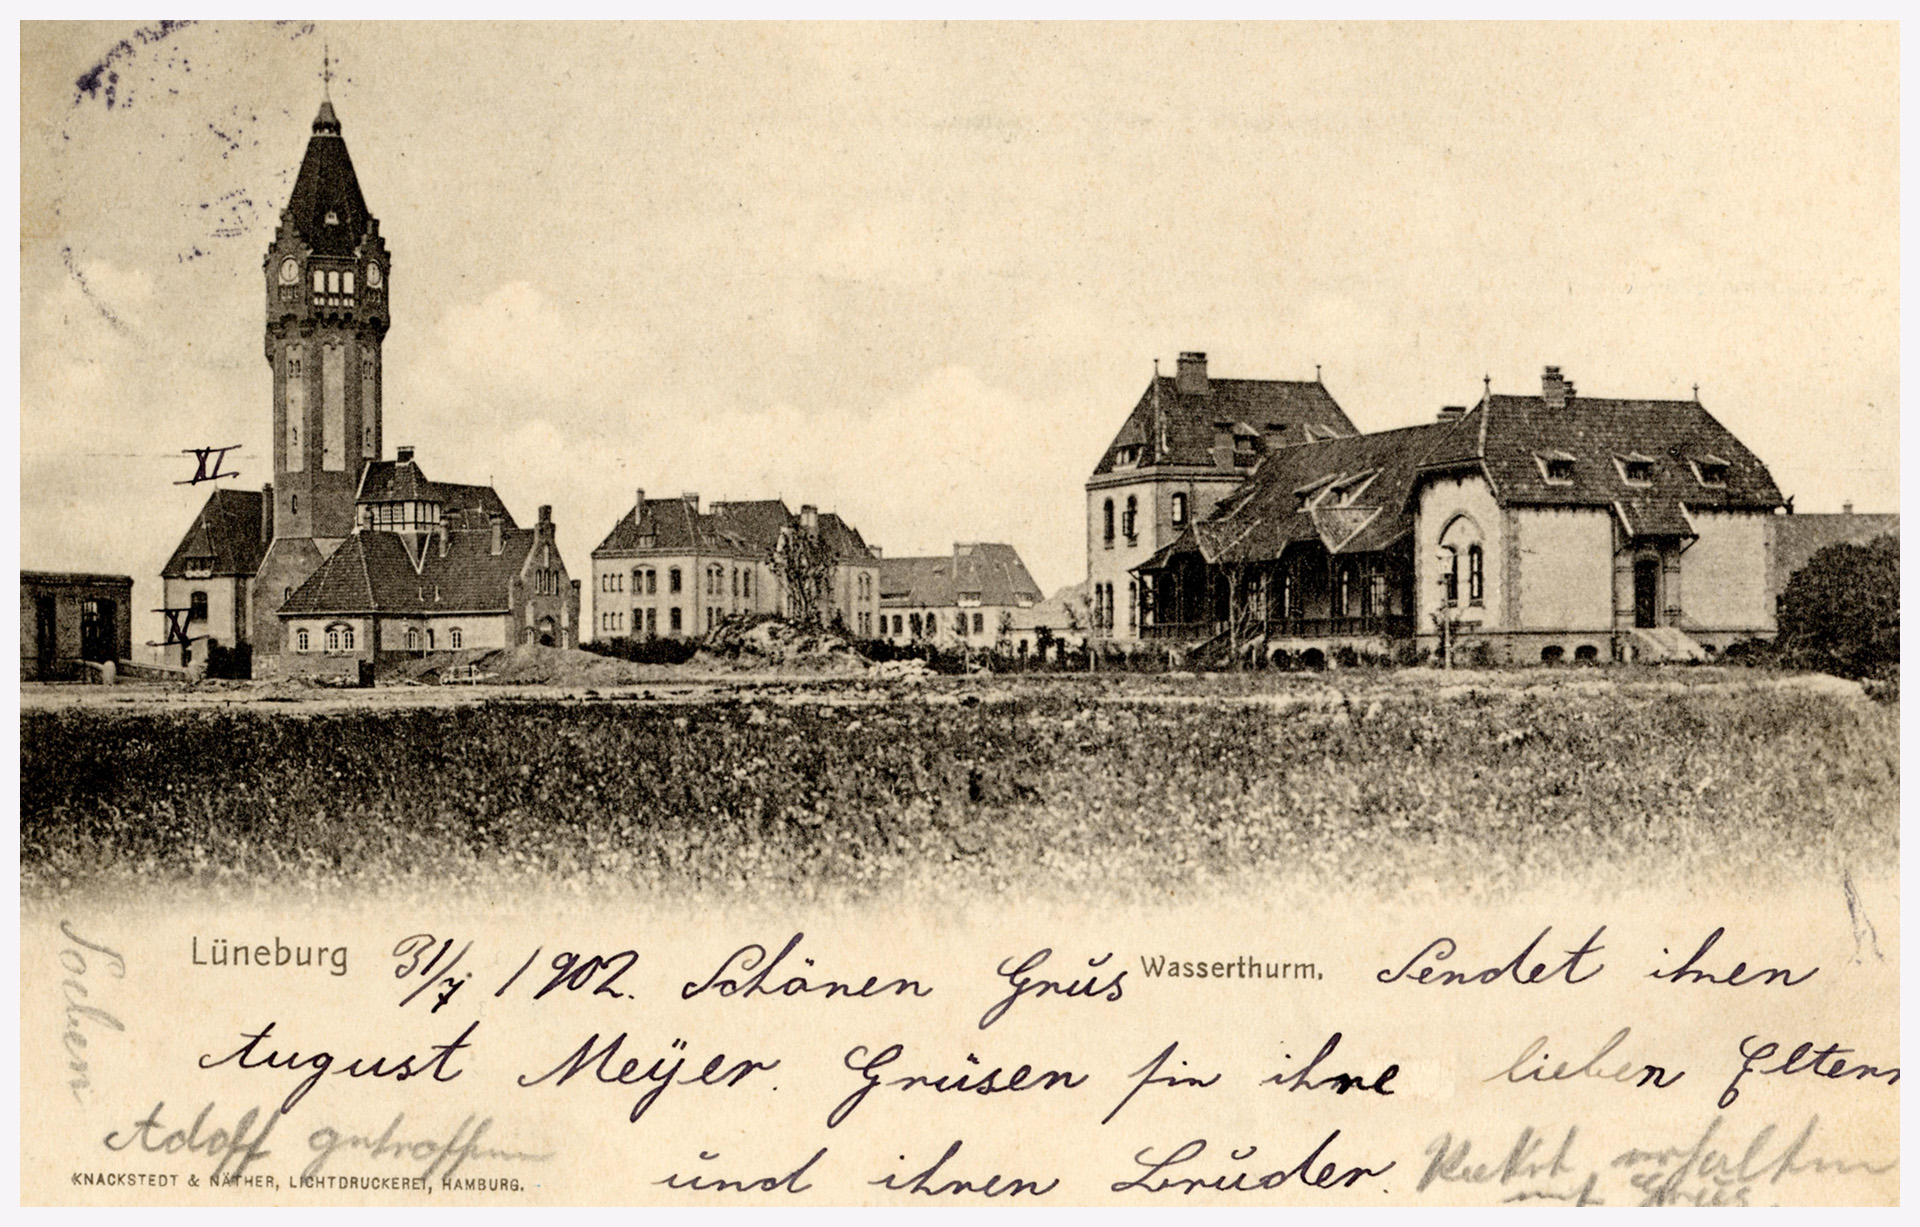 XI
X
Lüneburg 31/7 1902. Schönen Grŭs Wasserthurm. Sendet ihnen
August Meÿer. Grüsen sin ihre lieben Eltern
und ihren Brŭder.
Soeben
Adolf getroffen
Paket erhalten
mit Grŭs.
KNACKSTEDT & NÄTHER, LICHTDRUCKEREI, HAMBURG.